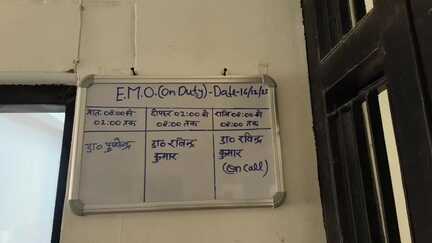 E.M.O.(On Duty)-Date-16/12/23
प्रातः 08:00 से
02:00 तक
दोपहर 02:00 से
08:00 तक
रात्रि 08:00 से
08:00 तक
डा०
डा० रविन्द्र
कुमार
डा० रविन्द्र
कुमार
(On Call)